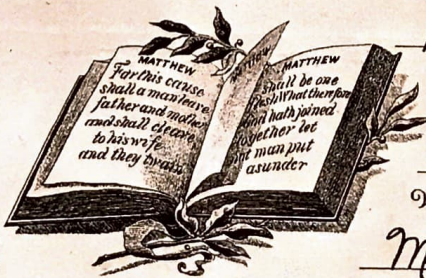 MATTHEW
For this cause
shall a man leave
father and mother
and shall cleave
to his wife
and they twain
MATTHEW
shall be one
flesh What therefore
God hath joined
together let
not man put
asunder
M